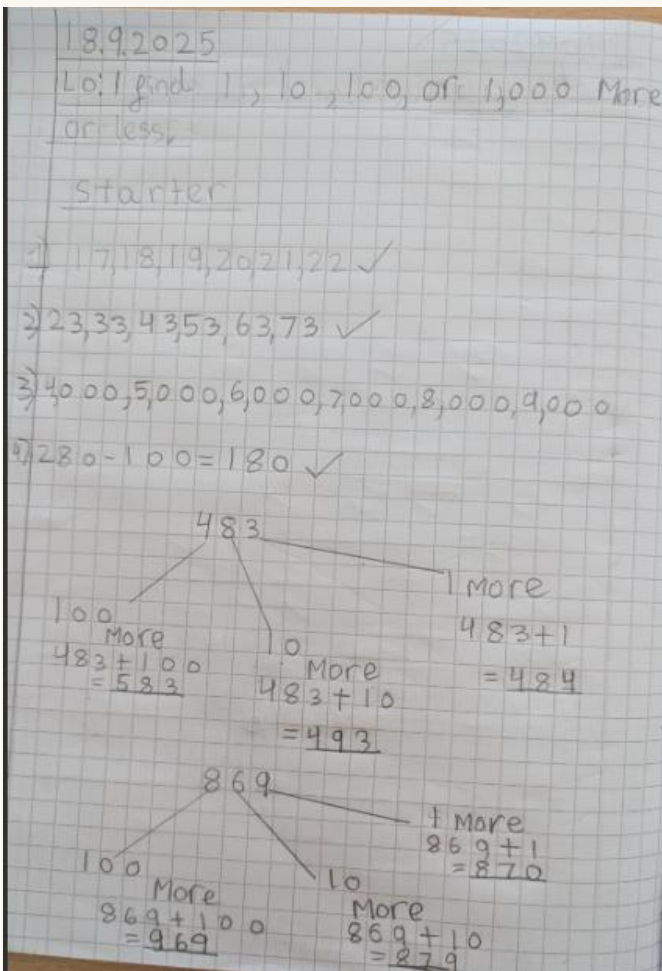 18.9.2025
LO: I find 1, 10, 100, or 1,000 More
or less.
Starter
1) 17,18,19,20,21,22 ✓
2) 23,33,43,53,63,73 ✓
3) 4,000,5,000,6,000,7,000,8,000,9,000
4) 280-100=180 ✓
483
100
More
483+100
=583
10
More
483+10
=493
1 More
483+1
=484
869
100
More
869+100
=969
10
More
869+10
=879
1 More
869+1
=870